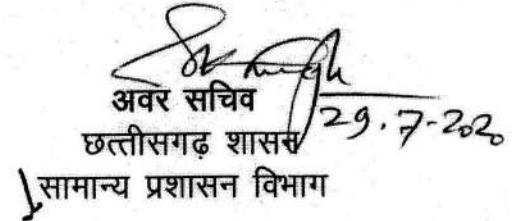 अवर सचिव
29.7-2020
छत्तीसगढ़ शासन
सामान्य प्रशासन विभाग